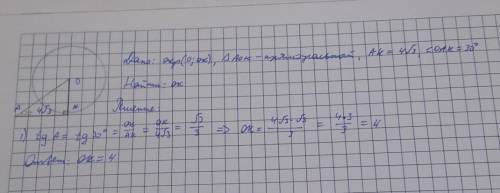 Дано: окр(O; OK), △AOK - прямоугольный, AK = 4√3, ∠OAK = 30°
Найти: OK
Решение:
O
A 4√3 K
1) tg A = tg 30° = OK/AK = OK/4√3 = √3/3 => OK = 4√3·√3/3 = 4*3/3 = 4
Ответ: OK = 4